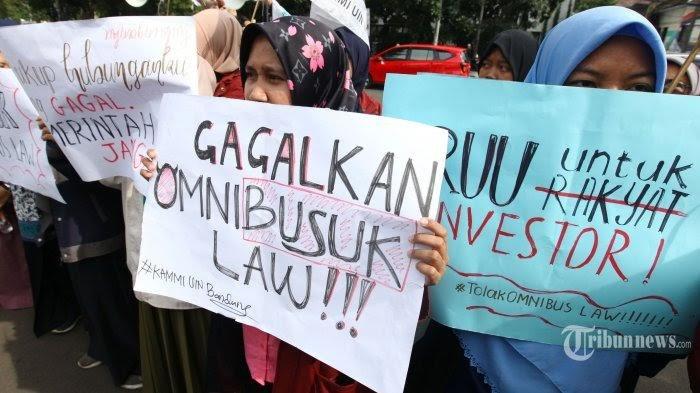 hubunganku
GAGAL.
JANG
GAGALKAN
OMNIBUSUK
LAW!!!
#KAMMI UIN Bandung
RUU untuk
RAKYAT
INVESTOR!
#TolakOMNIBUS LAW!!!!!!!
Tribunnews.com